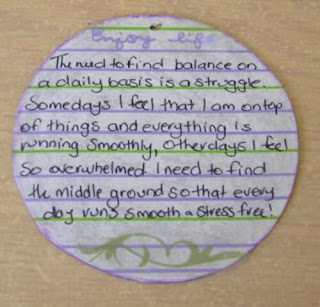 Enjoy life
The need to find balance on
a daily basis is a struggle.
Somedays I feel that I am on top
of things and everything is
running smoothly, other days I feel
so overwhelmed. I need to find
the middle ground so that every
day runs smooth & stress free!